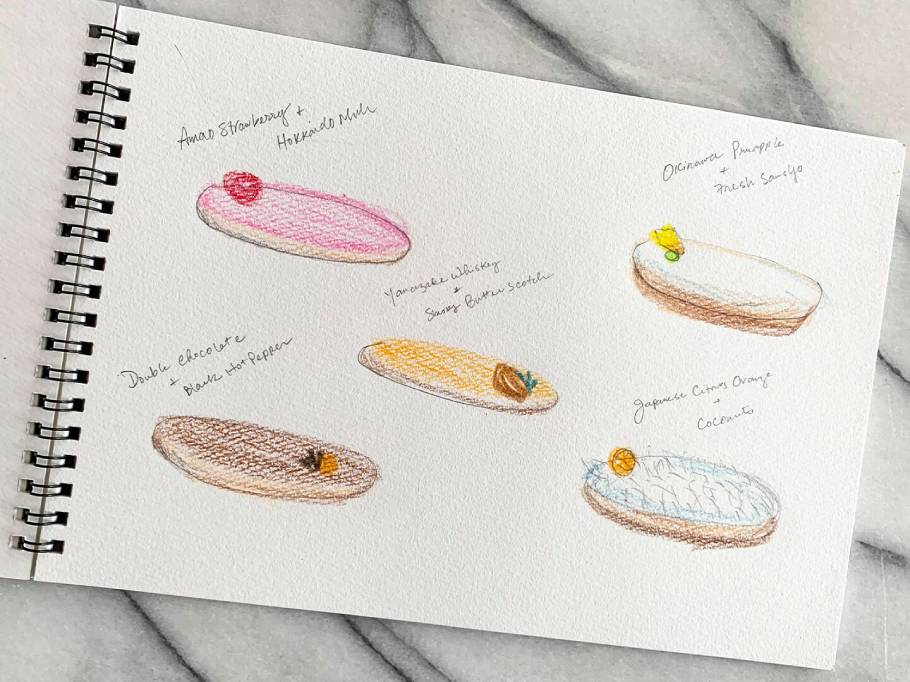 Amao Strawberry +
Hokkaido Milk
Okinawa Pineapple
+
Fresh Sansho
Yamazake Whiskey
+
Smoky Butter Scotch
Double Chocolate
+
Black Hot Pepper
Japanese Citrus Orange
+
Coconuts